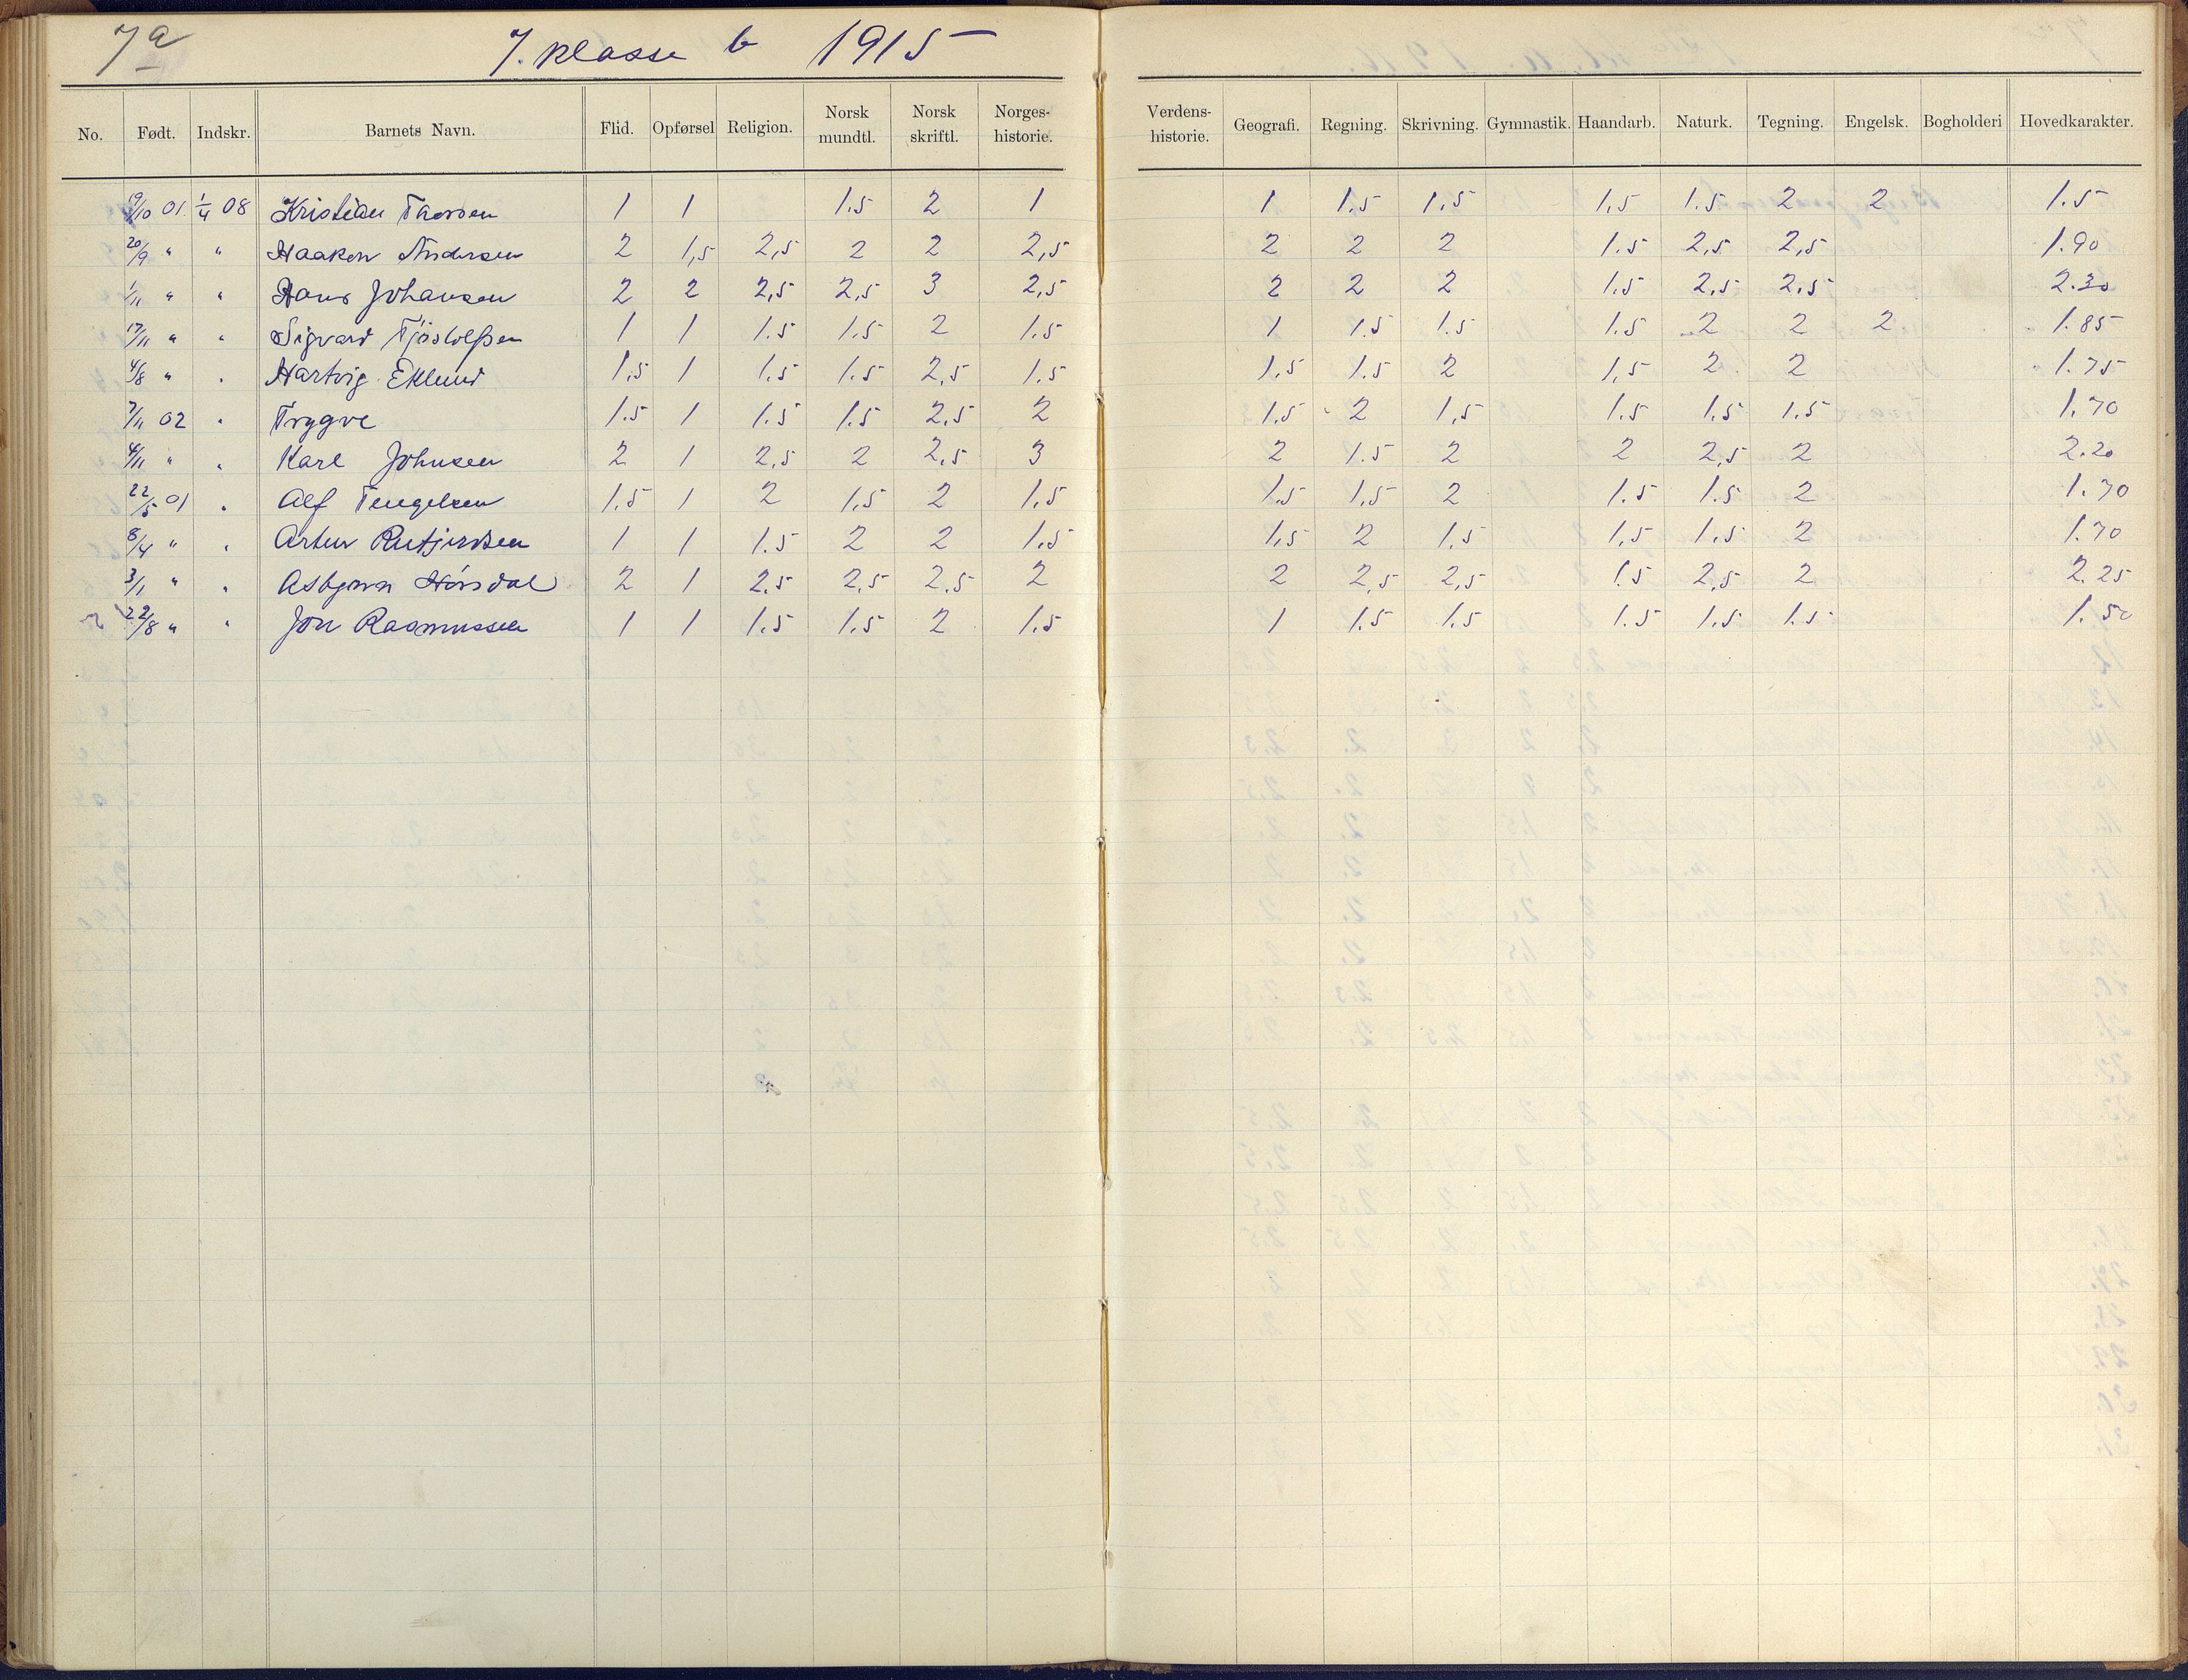 7a 7. klasse b 1915
No. Født. Indskr. Barnets Navn. Flid. Opførsel Religion. Norsk mundtl. Norsk skriftl. Norges-historie. Verdens-historie. Geografi. Regning. Skrivning. Gymnastik. Haandarb. Naturk. Tegning. Engelsk. Bogholderi Hovedkarakter.
19/10 01 1/4 08 Kristian Thorsen 1 1 1.5 2 1 1 1.5 1,5 1,5 1.5 2 2 1.5
20/9 " " Haakon Andersen 2 1,5 2,5 2 2 2,5 2 2 2 1.5 2,5 2,5 1.90
1/11 " " Hans Johansen 2 2 2,5 2,5 3 2,5 2 2 2 1.5 2,5 2,5 2.30
17/11 " " Sigvard Tjöstolfsen 1 1 1.5 1.5 2 1.5 1 1.5 1.5 1.5 2 2 2 1.85
4/8 " " Hartvig Eklund 1,5 1 1.5 1.5 2,5 1.5 1.5 1.5 2 1,5 2 2 1.75
7/11 02 " Trygve 1.5 1 1.5 1.5 2.5 2 1,5 2 1,5 1.5 1.5 1.5 1.70
4/11 " " Karl Johnsen 2 1 2,5 2 2,5 3 2 1.5 2 2 2,5 2 2.20
22/5 01 " Alf Tengelsen 1.5 1 2 1,5 2 1,5 1.5 1,5 2 1.5 1.5 2 1.70
8/4 " " Artur 1 1 1.5 2 2 1.5 1,5 2 1,5 1,5 1.5 2 1.70
3/1 " " Asbjørn Hörsdal 2 1 2.5 2,5 2.5 2 2 2,5 2,5 1.5 2,5 2 2.25
22/8 " " Jon Rasmussen 1 1 1.5 1.5 2 1.5 1 1.5 1.5 1.5 1.5 1.5 1.50